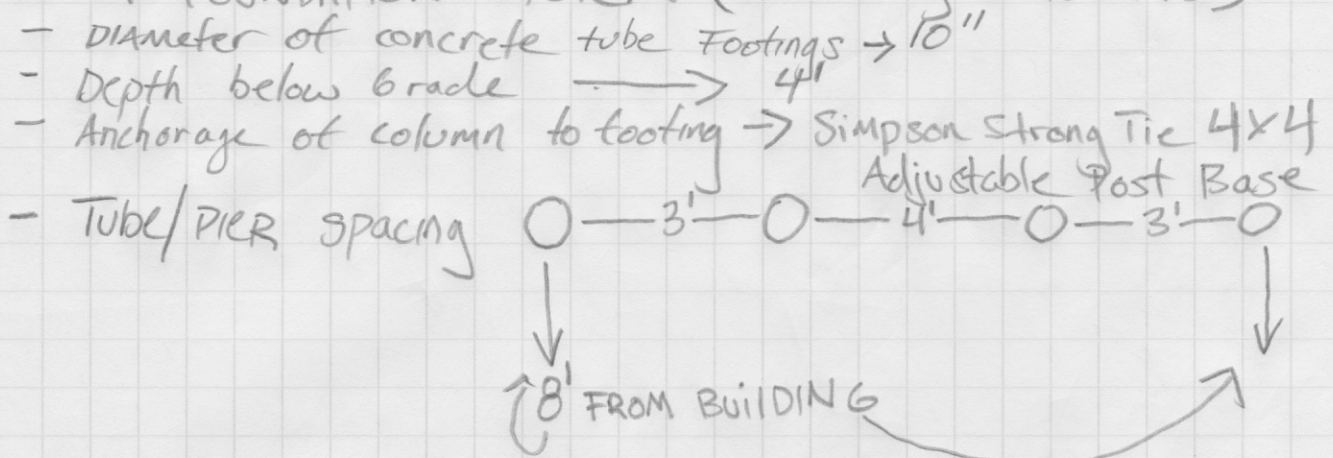 - DIAMeter of concrete tube Footings → 10"
- Depth below Grade → 4'
- Anchorage of column to footing → Simpson Strong Tie 4x4
Adjustable Post Base
- Tube/PIER spacing O — 3' — O — 4' — O — 3' — O
8' FROM BUilDING